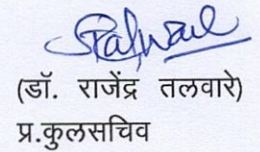 (डॉ. राजेंद्र तलवारे)
प्र.कुलसचिव